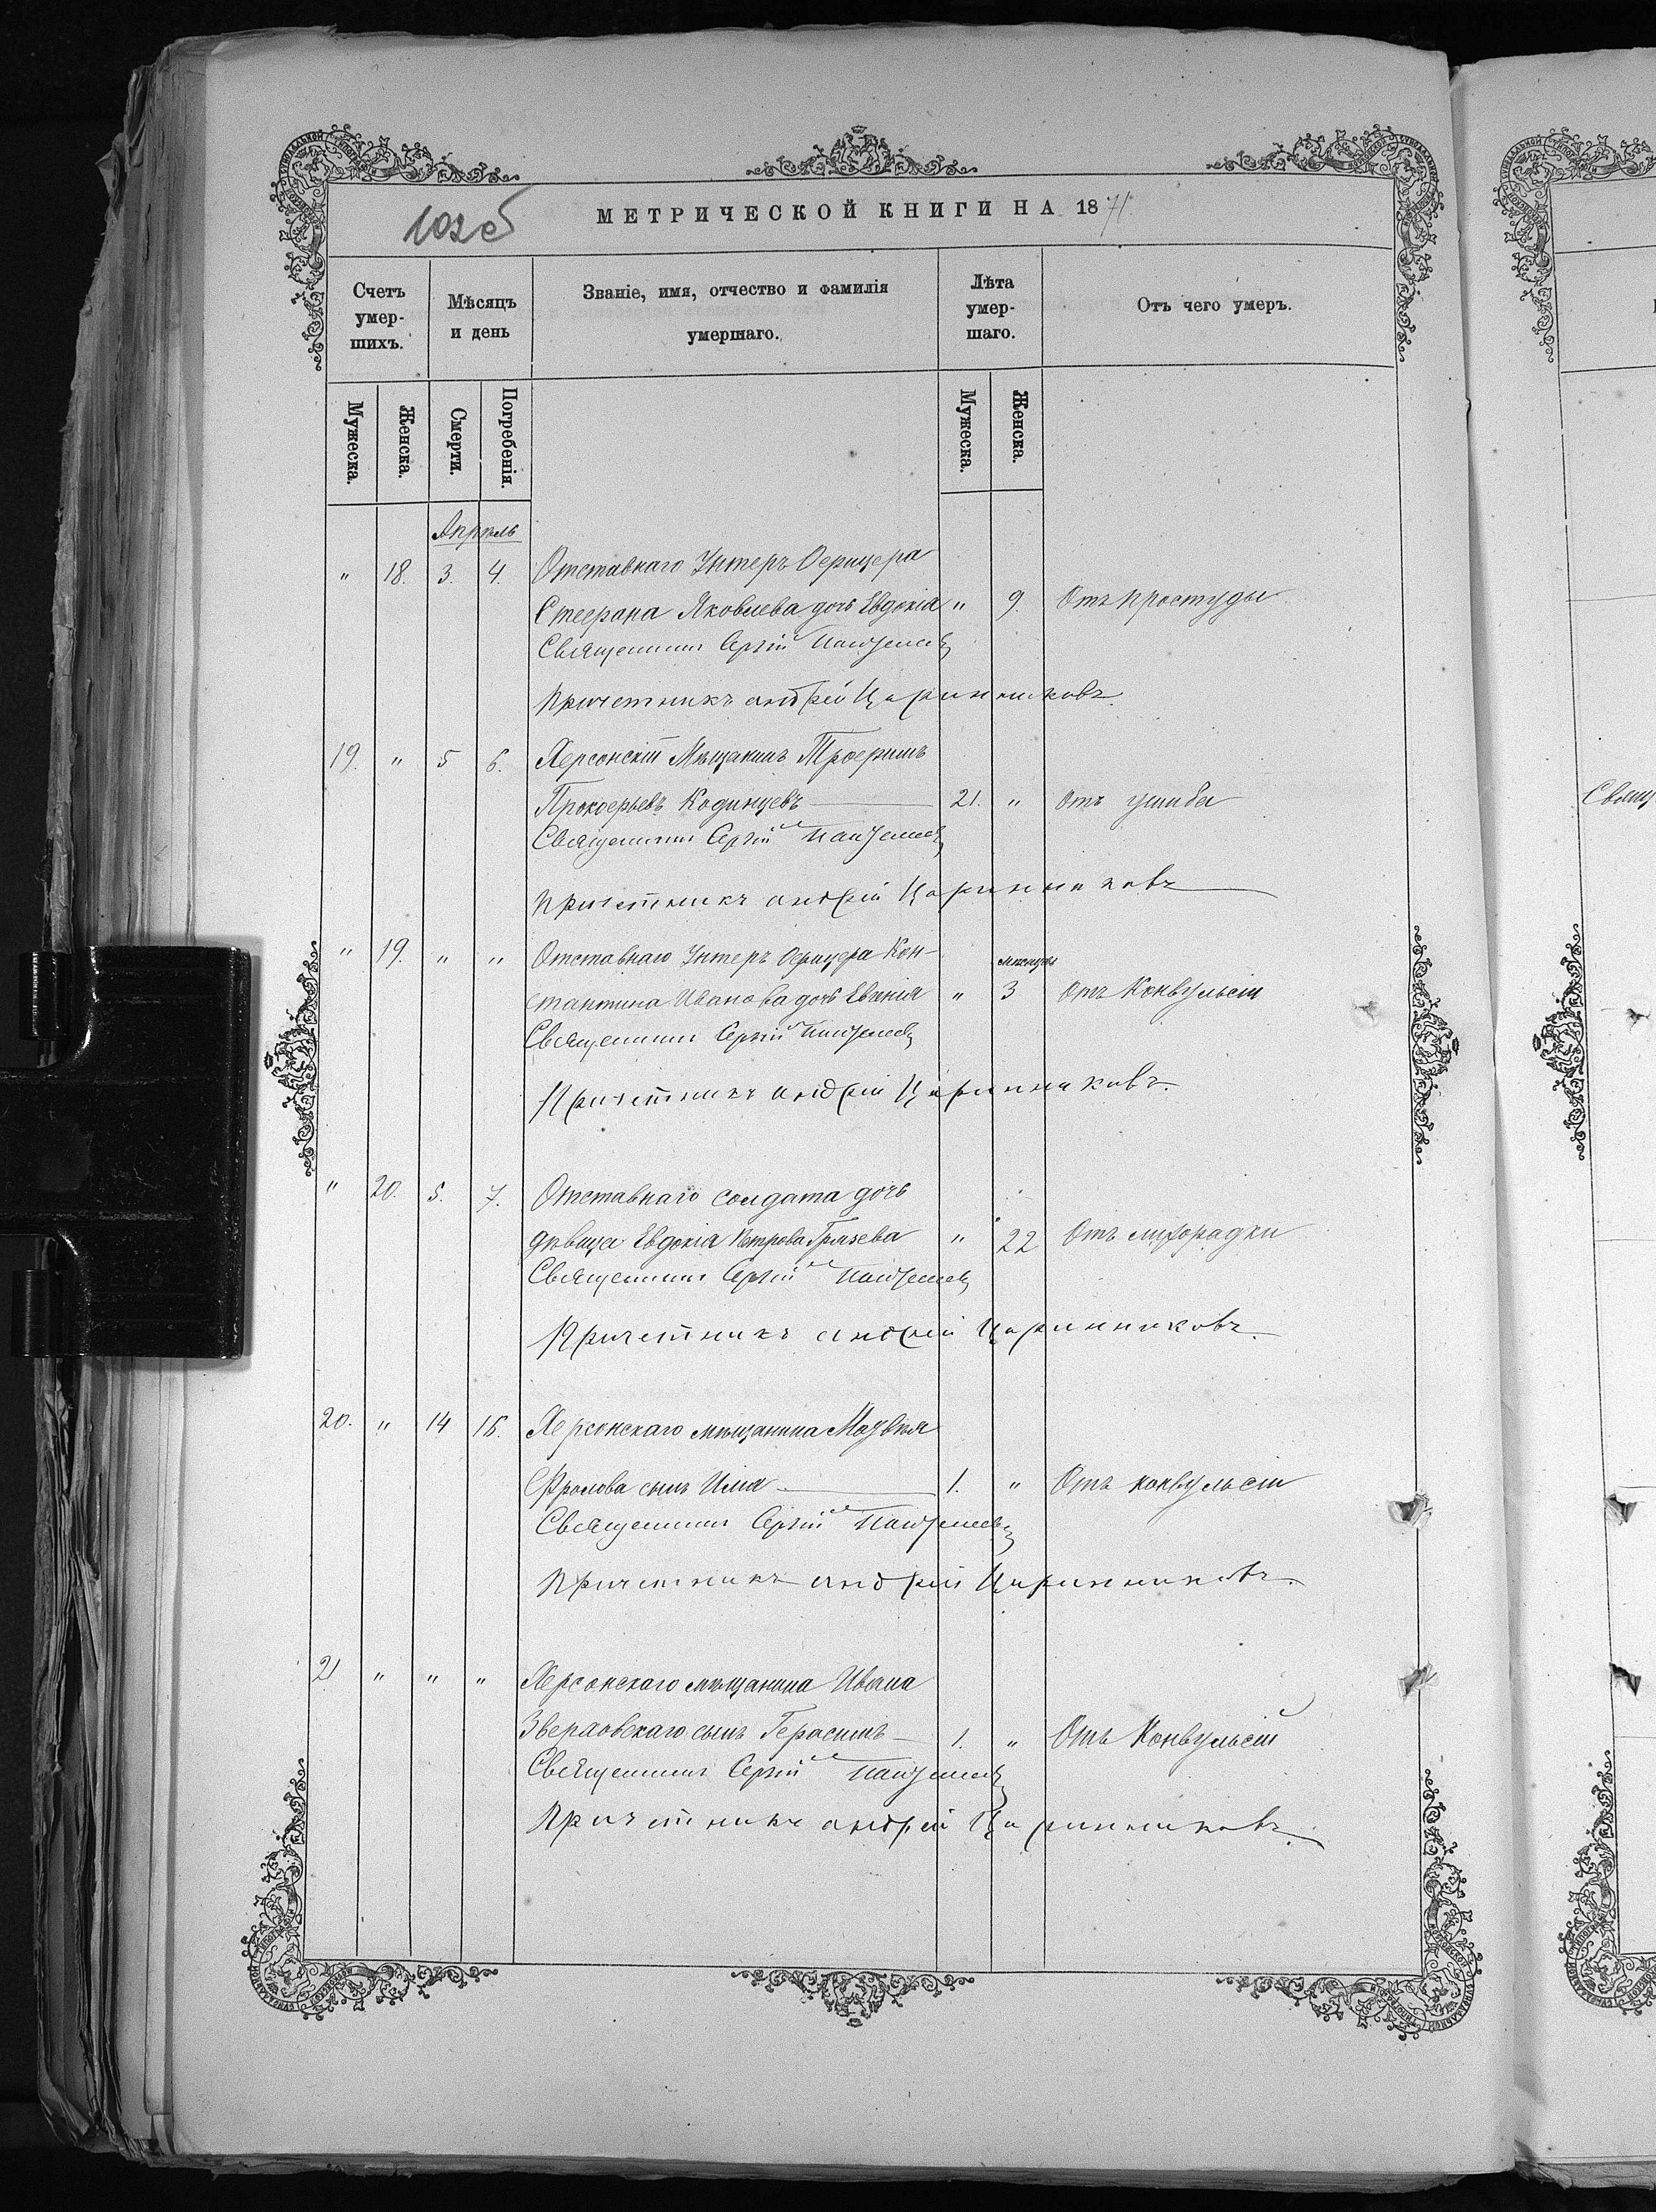 102 об
МЕТРИЧЕСКОЙ КНИГИ НА 1871
Счетъ умер-шихъ.
Мѣсяцъ и день
Званіе, имя, отчество и фамилія умершаго.
Лѣта умер-шаго.
Отъ чего умеръ.
Мужеска.
Женска.
Смерти.
Погребенія.
Мужеска.
Женска.
Апрѣль
" 18. 3. 4. Отставнаго Унтеръ Офицера
Стефана Яковлева дочь Евдокія " 9. Отъ простуды
Священникъ Сергій
Причетникъ андрей Царинниковъ.
19. " 5 6. Херсонскій Мѣщанинъ Трофимъ
Прокофьевъ Кодинцевъ 21. " Отъ ушиба
Священникъ Сергій
Причетникъ андрей Царинниковъ
" 19. " " Отставнаго Унтеръ Офицера Кон-
мѣсяцы
стантина Иванова дочь Евгенія " 3 Отъ Конвульсіи
Священникъ Сергій
Причетникъ андрей Царинниковъ.
" 20. 5. 7. Отставнаго солдата дочь
дѣвица Евдокія Петрова Грязева " 22 Отъ лихорадки
Священникъ Сергій
Причетникъ андрей Царинниковъ.
20. " 14 16. Херсонскаго мѣщанина
Фролова сынъ Илія 1. " Отъ конвульсіи
Священникъ Сергій
Причетникъ андрей Царинниковъ.
21 " " " Херсонскаго мѣщанина Ивана
Зверховскаго сынъ Герасимъ 1. " Отъ Конвульсій
Священникъ Сергій
Причетникъ андрей Царинниковъ.